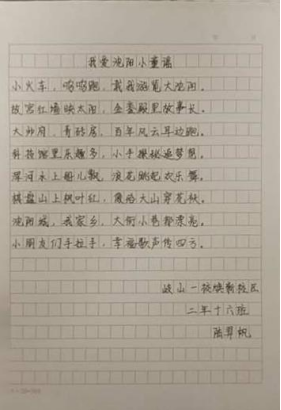 我爱沈阳小童谣
小火车，呜呜跑，载我游览大沈阳。
故宫红墙映太阳，金銮殿里故事长。
大帅府，青砖房，百年风云耳边响。
科技馆里乐趣多，小手操秘追梦想。
浑河水上唱儿歌，浪花跳起欢乐舞。
棋盘山上枫叶红，像给大山穿花袄。
沈阳城，我家乡，大街小巷都漂亮。
小朋友们手拉手，幸福歌声传四方。
岐山一校 校区
二年十六班
陆昇帆